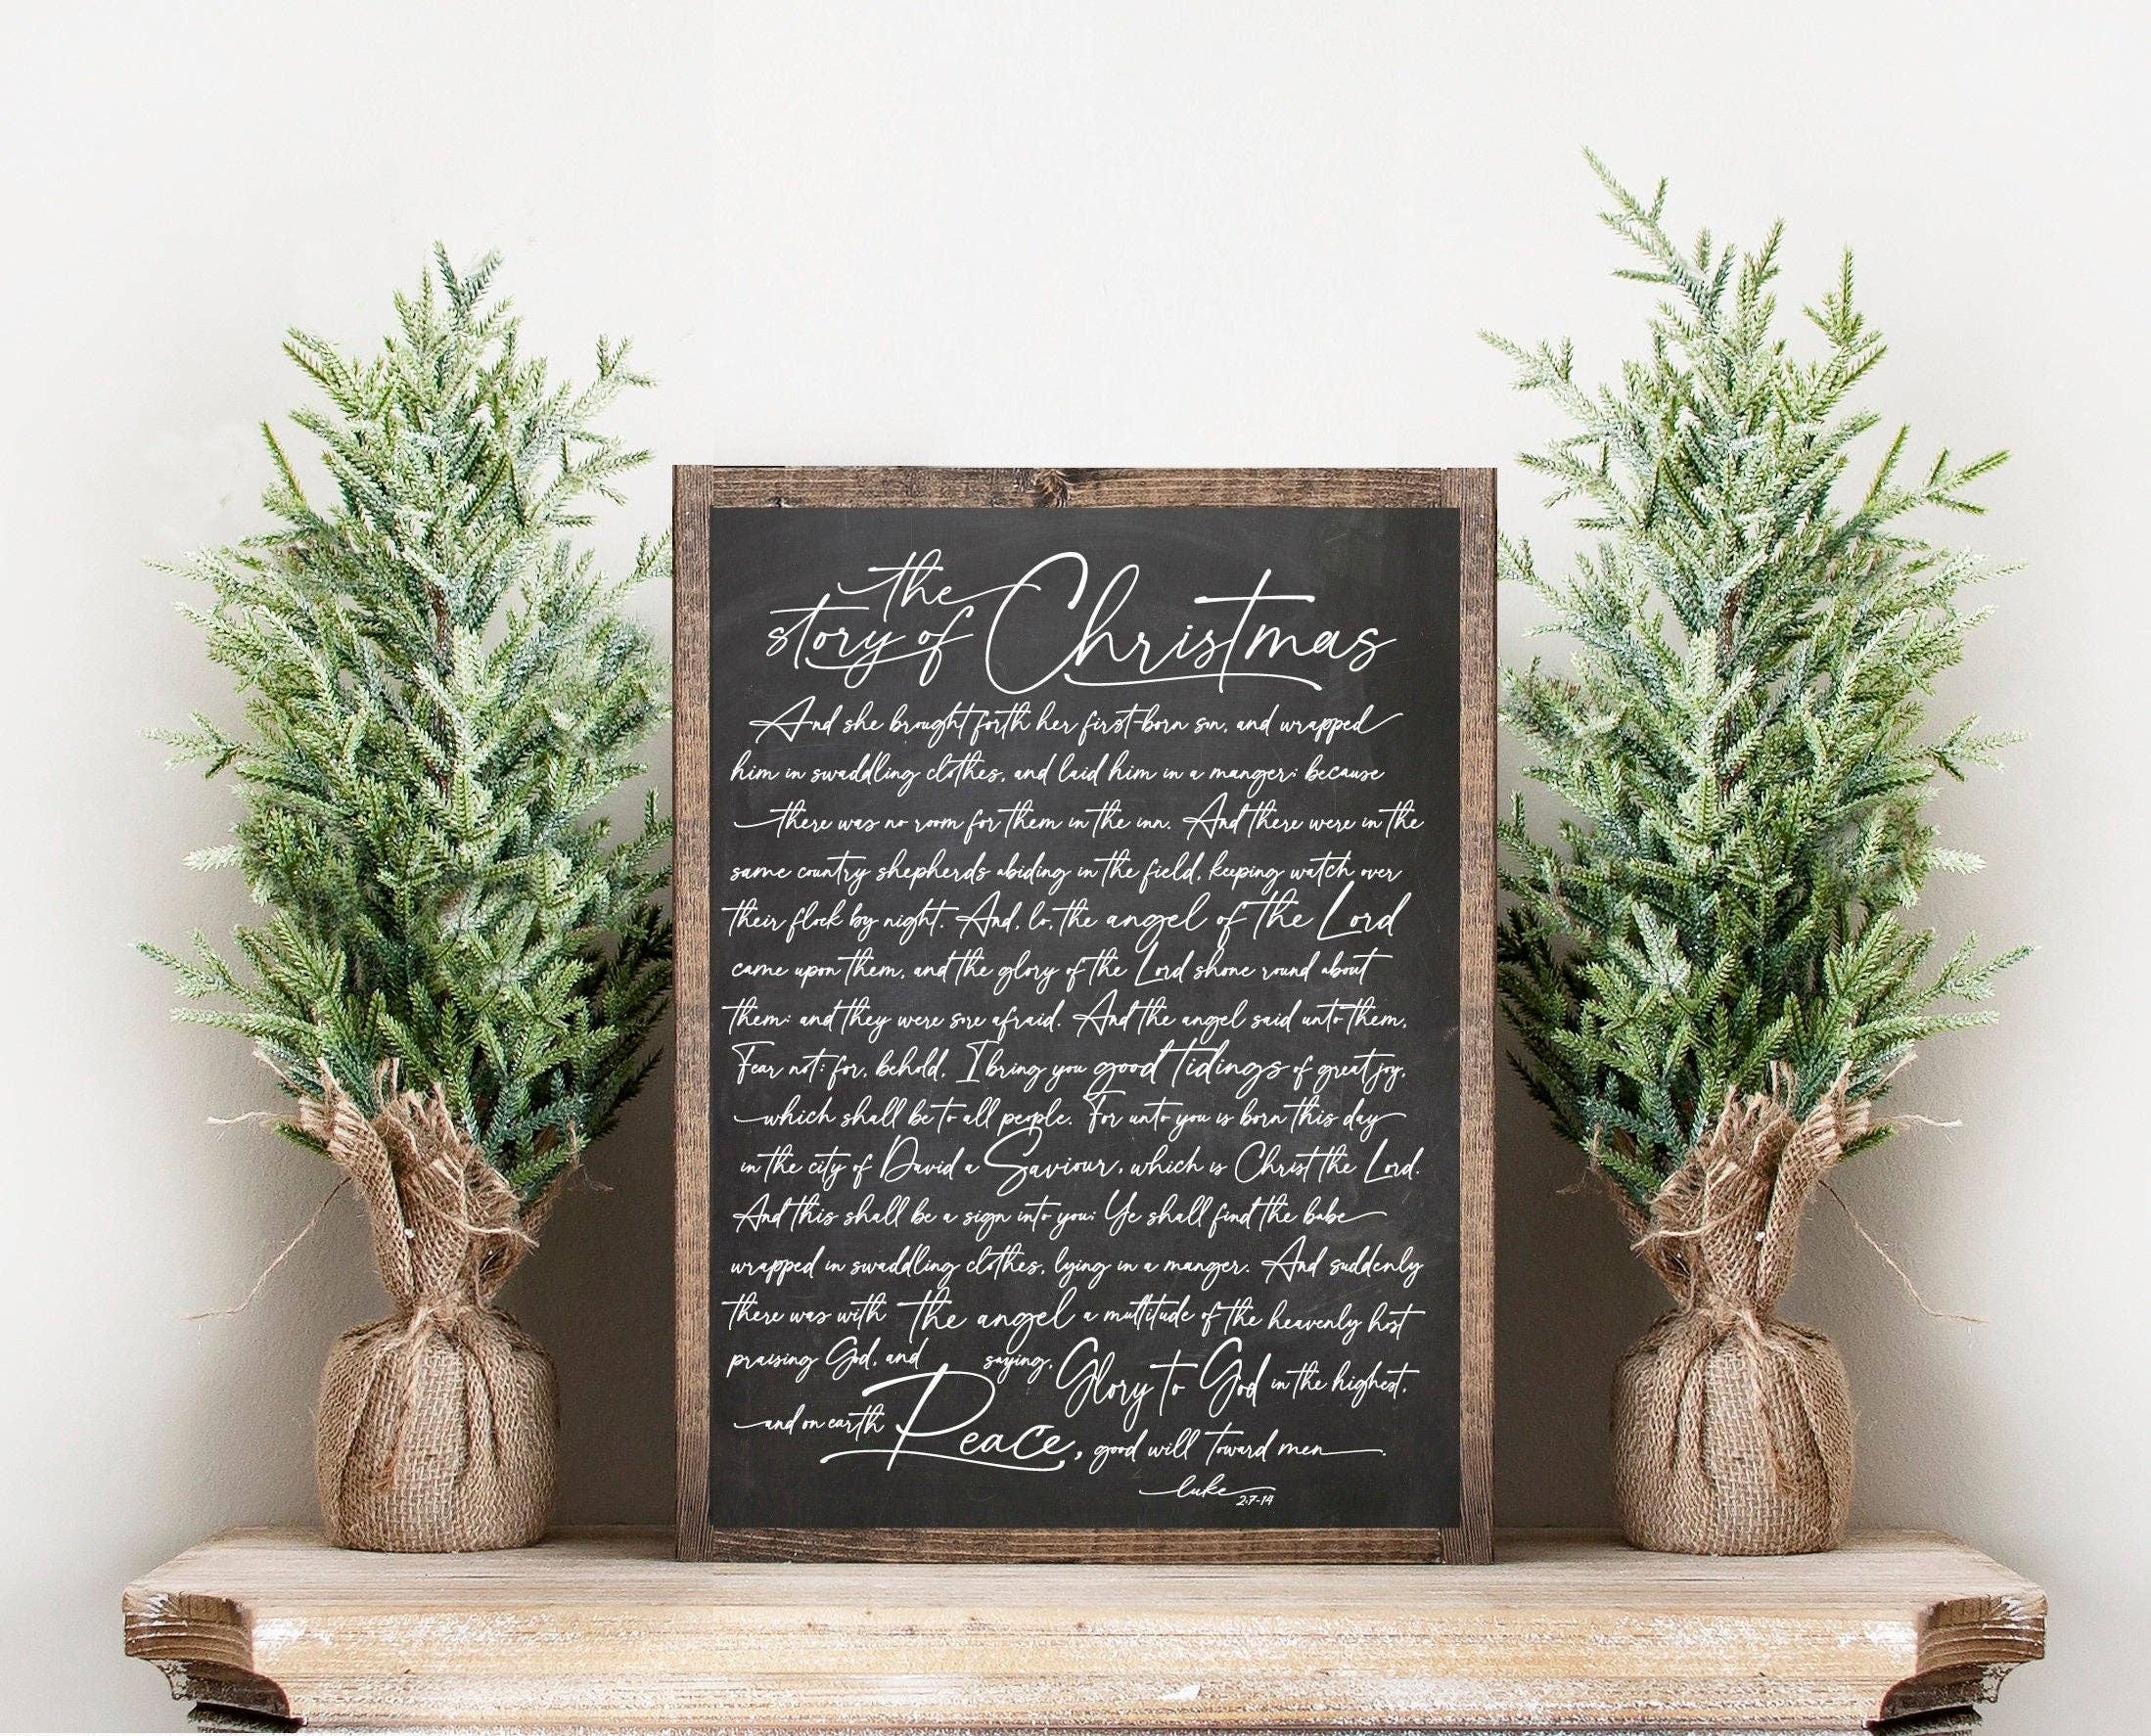 the
story of Christmas
And she brought forth her first-born son, and wrapped
him in swaddling clothes, and laid him in a manger; because
there was no room for them in the inn. And there were in the
same country shepherds abiding in the field, keeping watch over
their flock by night. And, lo, the angel of the Lord
came upon them, and the glory of the Lord shone round about
them: and they were sore afraid. And the angel said unto them,
Fear not: for, behold, I bring you good tidings of great joy,
which shall be to all people. For unto you is born this day
in the city of David a Saviour, which is Christ the Lord.
And this shall be a sign into you; Ye shall find the babe
wrapped in swaddling clothes, lying in a manger. And suddenly
there was with the angel a multitude of the heavenly host
praising God, and saying, Glory to God in the highest,
and on earth Peace, good will toward men.
luke 2:7-14